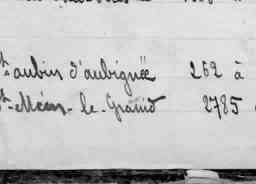 St aubin d'aubignée 262 à
St-Méen-le-Grand 2785